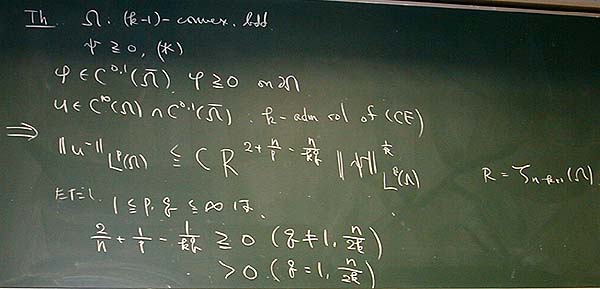 Th. Ω : (k-1)-convex. bdd
ψ ≧ 0, (*)
φ ∈ C^{0,1}(Ω̄), φ ≧ 0 on ∂Ω
u ∈ C^∞(Ω) ∩ C^{0,1}(Ω̄). k-adm sol of (CE)
⇒ ‖u⁻‖_{L^p(Ω)} ≦ C R^{2 + n/p - n/kq} ‖ψ‖^{1/k}_{L^q(Ω)} R = ζ_{n-k+1}(Ω).
ただし 1 ≦ p, q ≦ ∞ は.
2/n + 1/p - 1/kq ≧ 0 (q ≠ 1, n/2k)
> 0 (q = 1, n/2k)